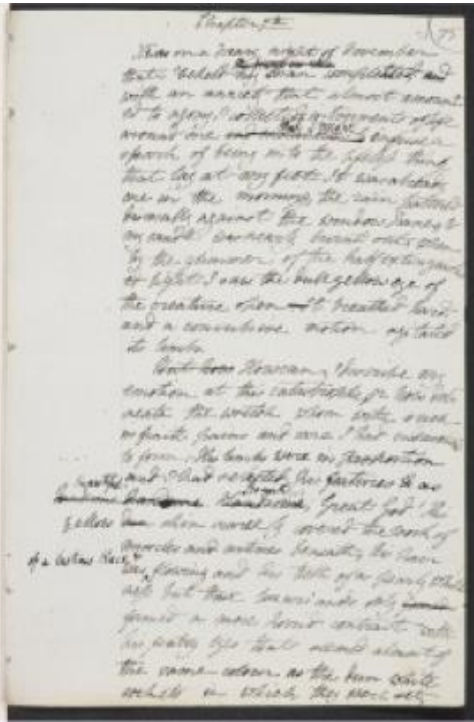 Chapter 7th
It was on a dreary night of November
that I beheld my man completed and
with an anxiety that almost amount
ed to agony I collected instruments of life
around me that I might infuse a
spark of being into the lifeless thing
that lay at my feet. It was already
one in the morning, the rain pattered
dismally against the window panes &
my candle was nearly burnt out, when
by the glimmer of the half extinguish
ed light I saw the dull yellow eye of
the creature open It breathed hard,
and a convulsive motion agitated
its limbs.
But how How can I describe my
emotion at this catastrophe; or how deli
neate the wretch whom with such
infinite pains and care I had endeavoured
to form. His limbs were in proportion
and I had selected his features as
handsome Great God! His
yellow skin scarcely covered the work of
muscles and arteries beneath; his hair
of a lustrous black
was flowing and his teeth of a pearly white
ness but these luxuriances only
formed a more horrid contrast with
his watry eyes that seemed almost of
the same colour as the dun white
sockets in which they were set,